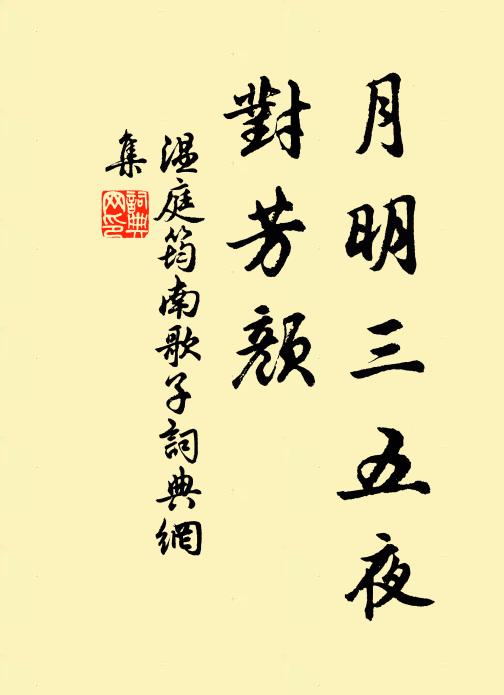 月明三五夜
對芳顏
温庭筠南歌子詞典網
集
詞典
网印